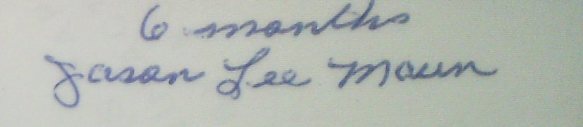 6 months
Jason Lee Maun